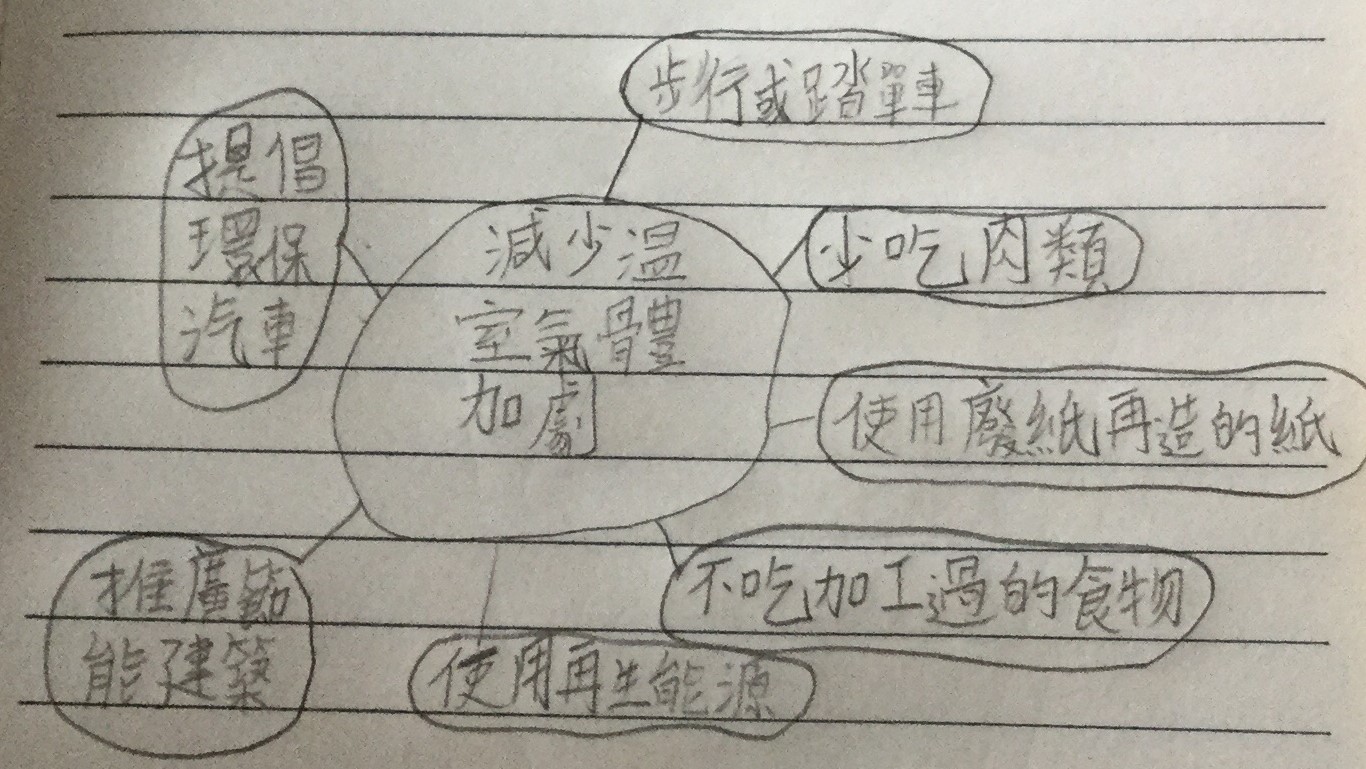 步行或踏單車
提倡
環保
汽車
減少溫
室氣體
加劇
少吃肉類
使用廢紙再造的紙
不吃加工過的食物
推廣節
能建築
使用再生能源